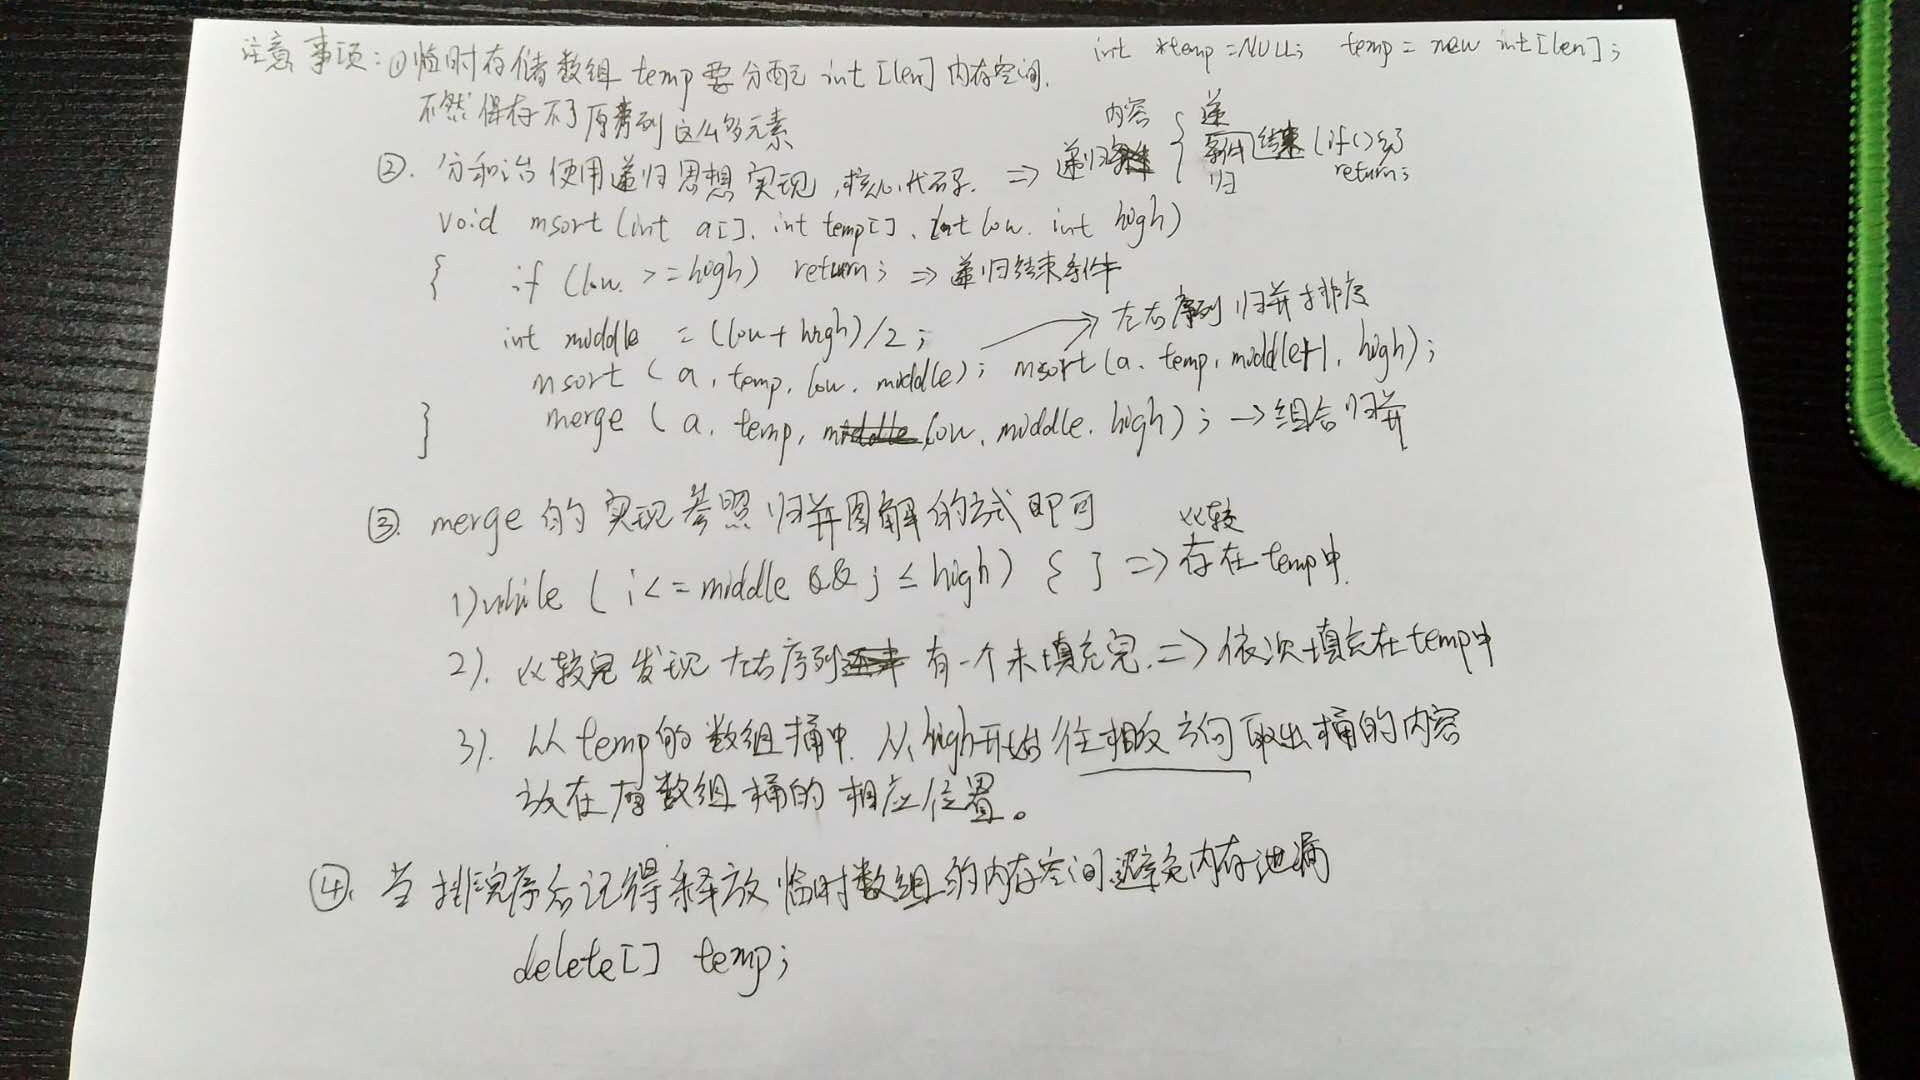 注意事项：①临时存储数组 temp 要分配 int [len] 内存空间. int *temp=NULL; temp = new int[len];
不然保存不了原序列这么多元素
②. 分和治 使用递归思想实现,核心代码. => 递归 内容 { 递 结束 (if(){} return; 归
void msort (int a[], int temp[], int low, int high)
{ if (low >= high) return; => 递归结束条件
int middle = (low + high)/2; → 左右序列归并排序
msort (a, temp, low, middle); msort (a, temp, middle+1, high);
} merge (a, temp, low, middle, high); → 组合归并
③. merge 的实现参照归并图解的方式即可
1) while (i <= middle && j ≤ high) { } => 比较 存在temp中.
2). 比较完发现左右序列有一个未填充完. => 依次填充在temp中
3). 从temp的数组桶中 从high开始往相反方向取出桶的内容
放在原数组桶的相应位置。
④. 当排完序后记得释放临时数组的内存空间避免内存泄漏
delete[] temp;